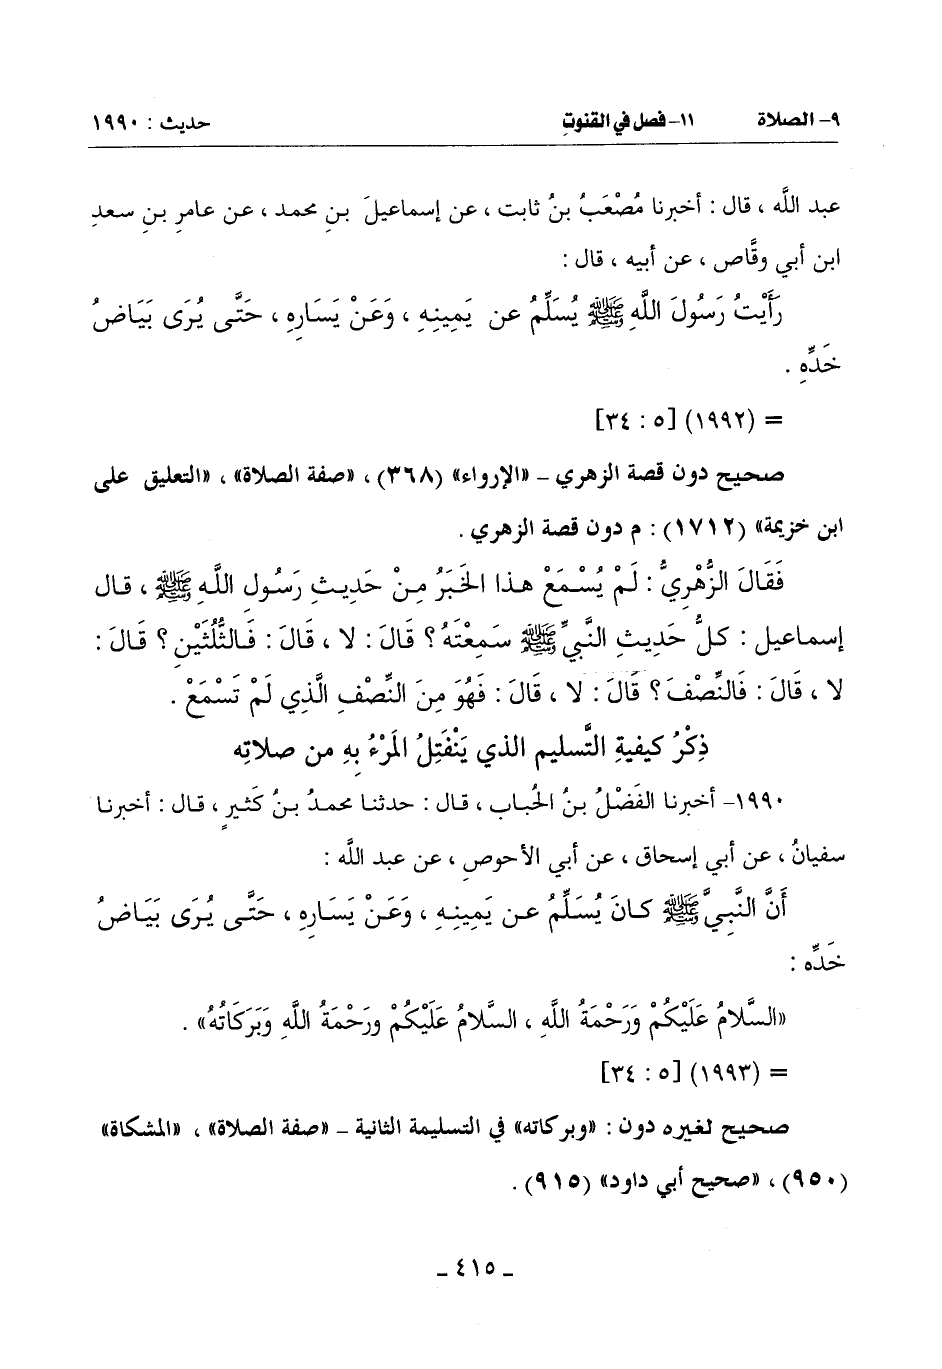 ٩- الصلاة ١١- فصل في القنوتِ حديث : ١٩٩٠
عبد اللَّه ، قال : أخبرنا مُصْعَبُ بنُ ثابت ، عن إسماعيلَ بنِ محمد ، عن عامرِ بنِ سعدِ
ابن أبي وقَّاص ، عن أبيه ، قال :
رَأَيْتُ رَسُولَ اللَّهِ ﷺ يُسَلِّمُ عن يَمِينِهِ ، وَعَنْ يَسَارِهِ ، حَتَّى يُرَى بَيَاضُ
خَدِّهِ .
= (١٩٩٢) [٥ : ٣٤]
صحيح دون قصة الزهري – «الإرواء» (٣٦٨) ، «صفة الصلاة» ، «التعليق على
ابن خزيمة» (١٧١٢) : م دون قصة الزهري .
فَقَالَ الزُّهْرِيُّ : لَمْ يُسْمَعْ هذا الخَبَرُ مِنْ حَدِيثِ رَسُول اللَّهِ ﷺ ، قال
إسماعيل : كلُّ حَدِيثِ النَّبِيِّ ﷺ سَمِعْتَهُ ؟ قَالَ : لا ، قَالَ : فَالثُّلُثَيْنِ ؟ قَالَ :
لا ، قَالَ : فَالنِّصْفَ ؟ قَالَ : لا ، قَالَ : فَهُوَ مِنَ النِّصْفِ الَّذِي لَمْ تَسْمَعْ .
ذِكْرُ كيفيةِ التَّسليم الذي يَنْفَتِلُ المَرْءُ بِهِ من صلاتِه
١٩٩٠- أخبرنا الفَضْلُ بنُ الحُباب ، قال : حدثنا محمدُ بنُ كَثيرٍ ، قال : أخبرنا
سفيانُ ، عن أبي إسحاق ، عن أبي الأحوصِ ، عن عبد اللَّه :
أَنَّ النَّبِيَّ ﷺ كانَ يُسَلِّمُ عن يَمِينِهِ ، وَعَنْ يَسَارِهِ ، حَتَّى يُرَى بَيَاضُ
خَدِّه :
«السَّلامُ عَلَيْكُمْ وَرَحْمَةُ اللَّهِ ، السَّلامُ عَلَيْكُمْ ورَحْمَةُ اللَّهِ وَبَرَكَاتُهُ» .
= (١٩٩٣) [٥ : ٣٤]
صحيح لغيره دون : «وبركاته» في التسليمة الثانية – «صفة الصلاة» ، «المشكاة»
(٩٥٠) ، «صحيح أبي داود» (٩١٥) .
ـ ٤١٥ ـ